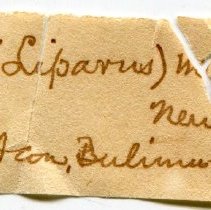 (Liparus) m
New
Bulimu